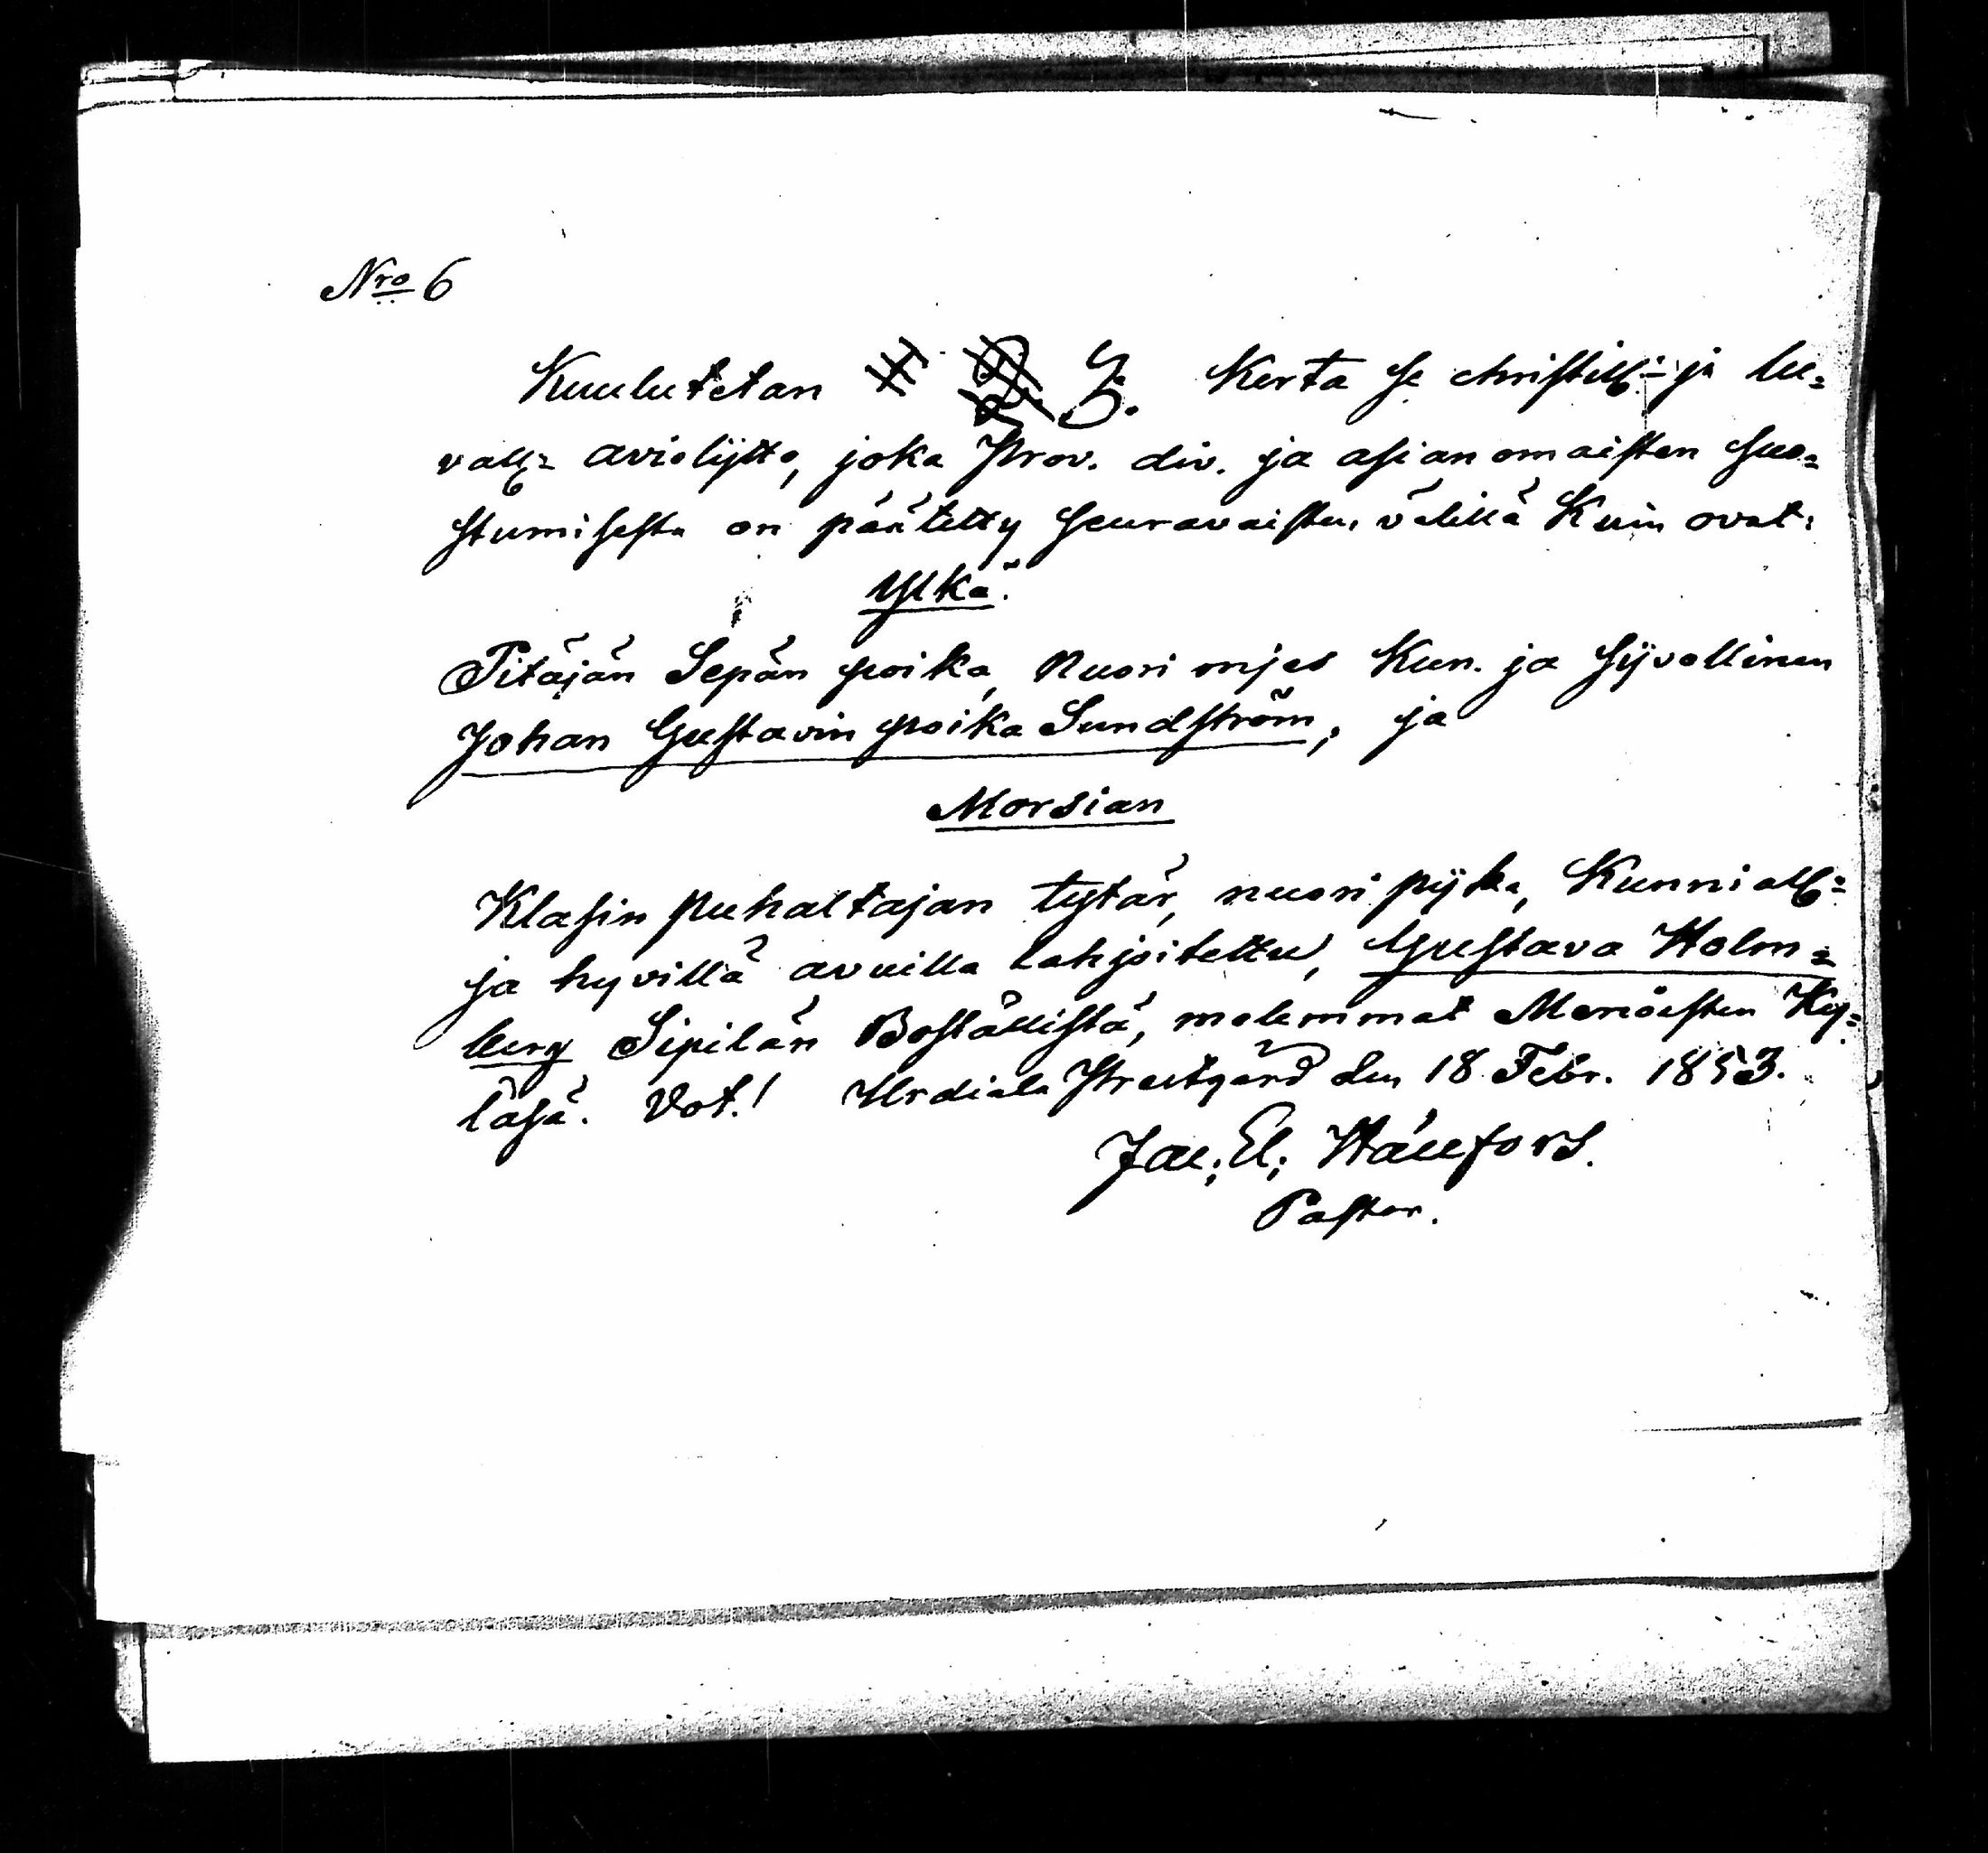 Nro 6
Kuulutetan 3. Kerta se christill: ja lu=
vall: avioliitto, joka Prov. div. ja asianomaisten suo=
stumisesta on päätetty seuravaisten välillä Kuin ovat:
Ylkä:
Pitäjän Sepän poika, Nuori mjes Kun. ja sijvollinen
Johan Gustavin poika Sundström, ja
Morsian
Klasin puhaltajan tytär, nuori pijka, Kunniall:
ja hyvillä avuilla lahjoitettu, Gustava Holm=
berg Sipilän Boställistä, molemmat Menöisten Ky=
läsä. Vot.! Urdiala Prestgård den 18 Febr. 1853.
Jac: El: Hällfors.
Pastor.